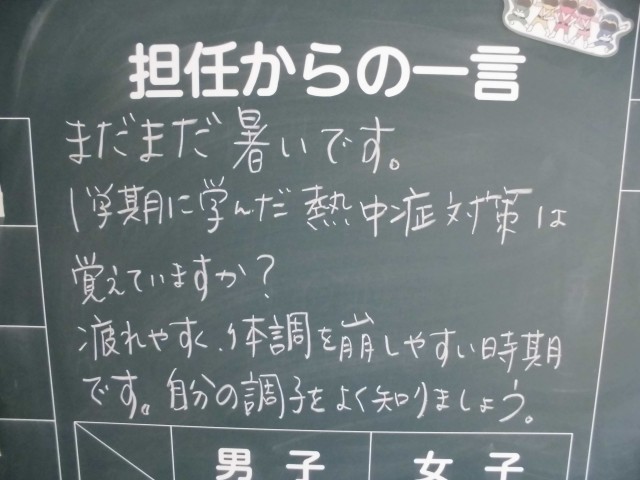 担任からの一言
まだまだ暑いです。
1学期に学んだ熱中症対策は
覚えていますか?
疲れやすく、体調を崩しやすい時期
です。自分の調子をよく知りましょう。
男子 女子